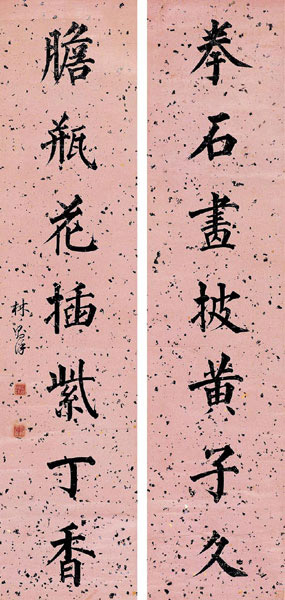 拳石畫披黃子久
膽瓶花插紫丁香
林則徐